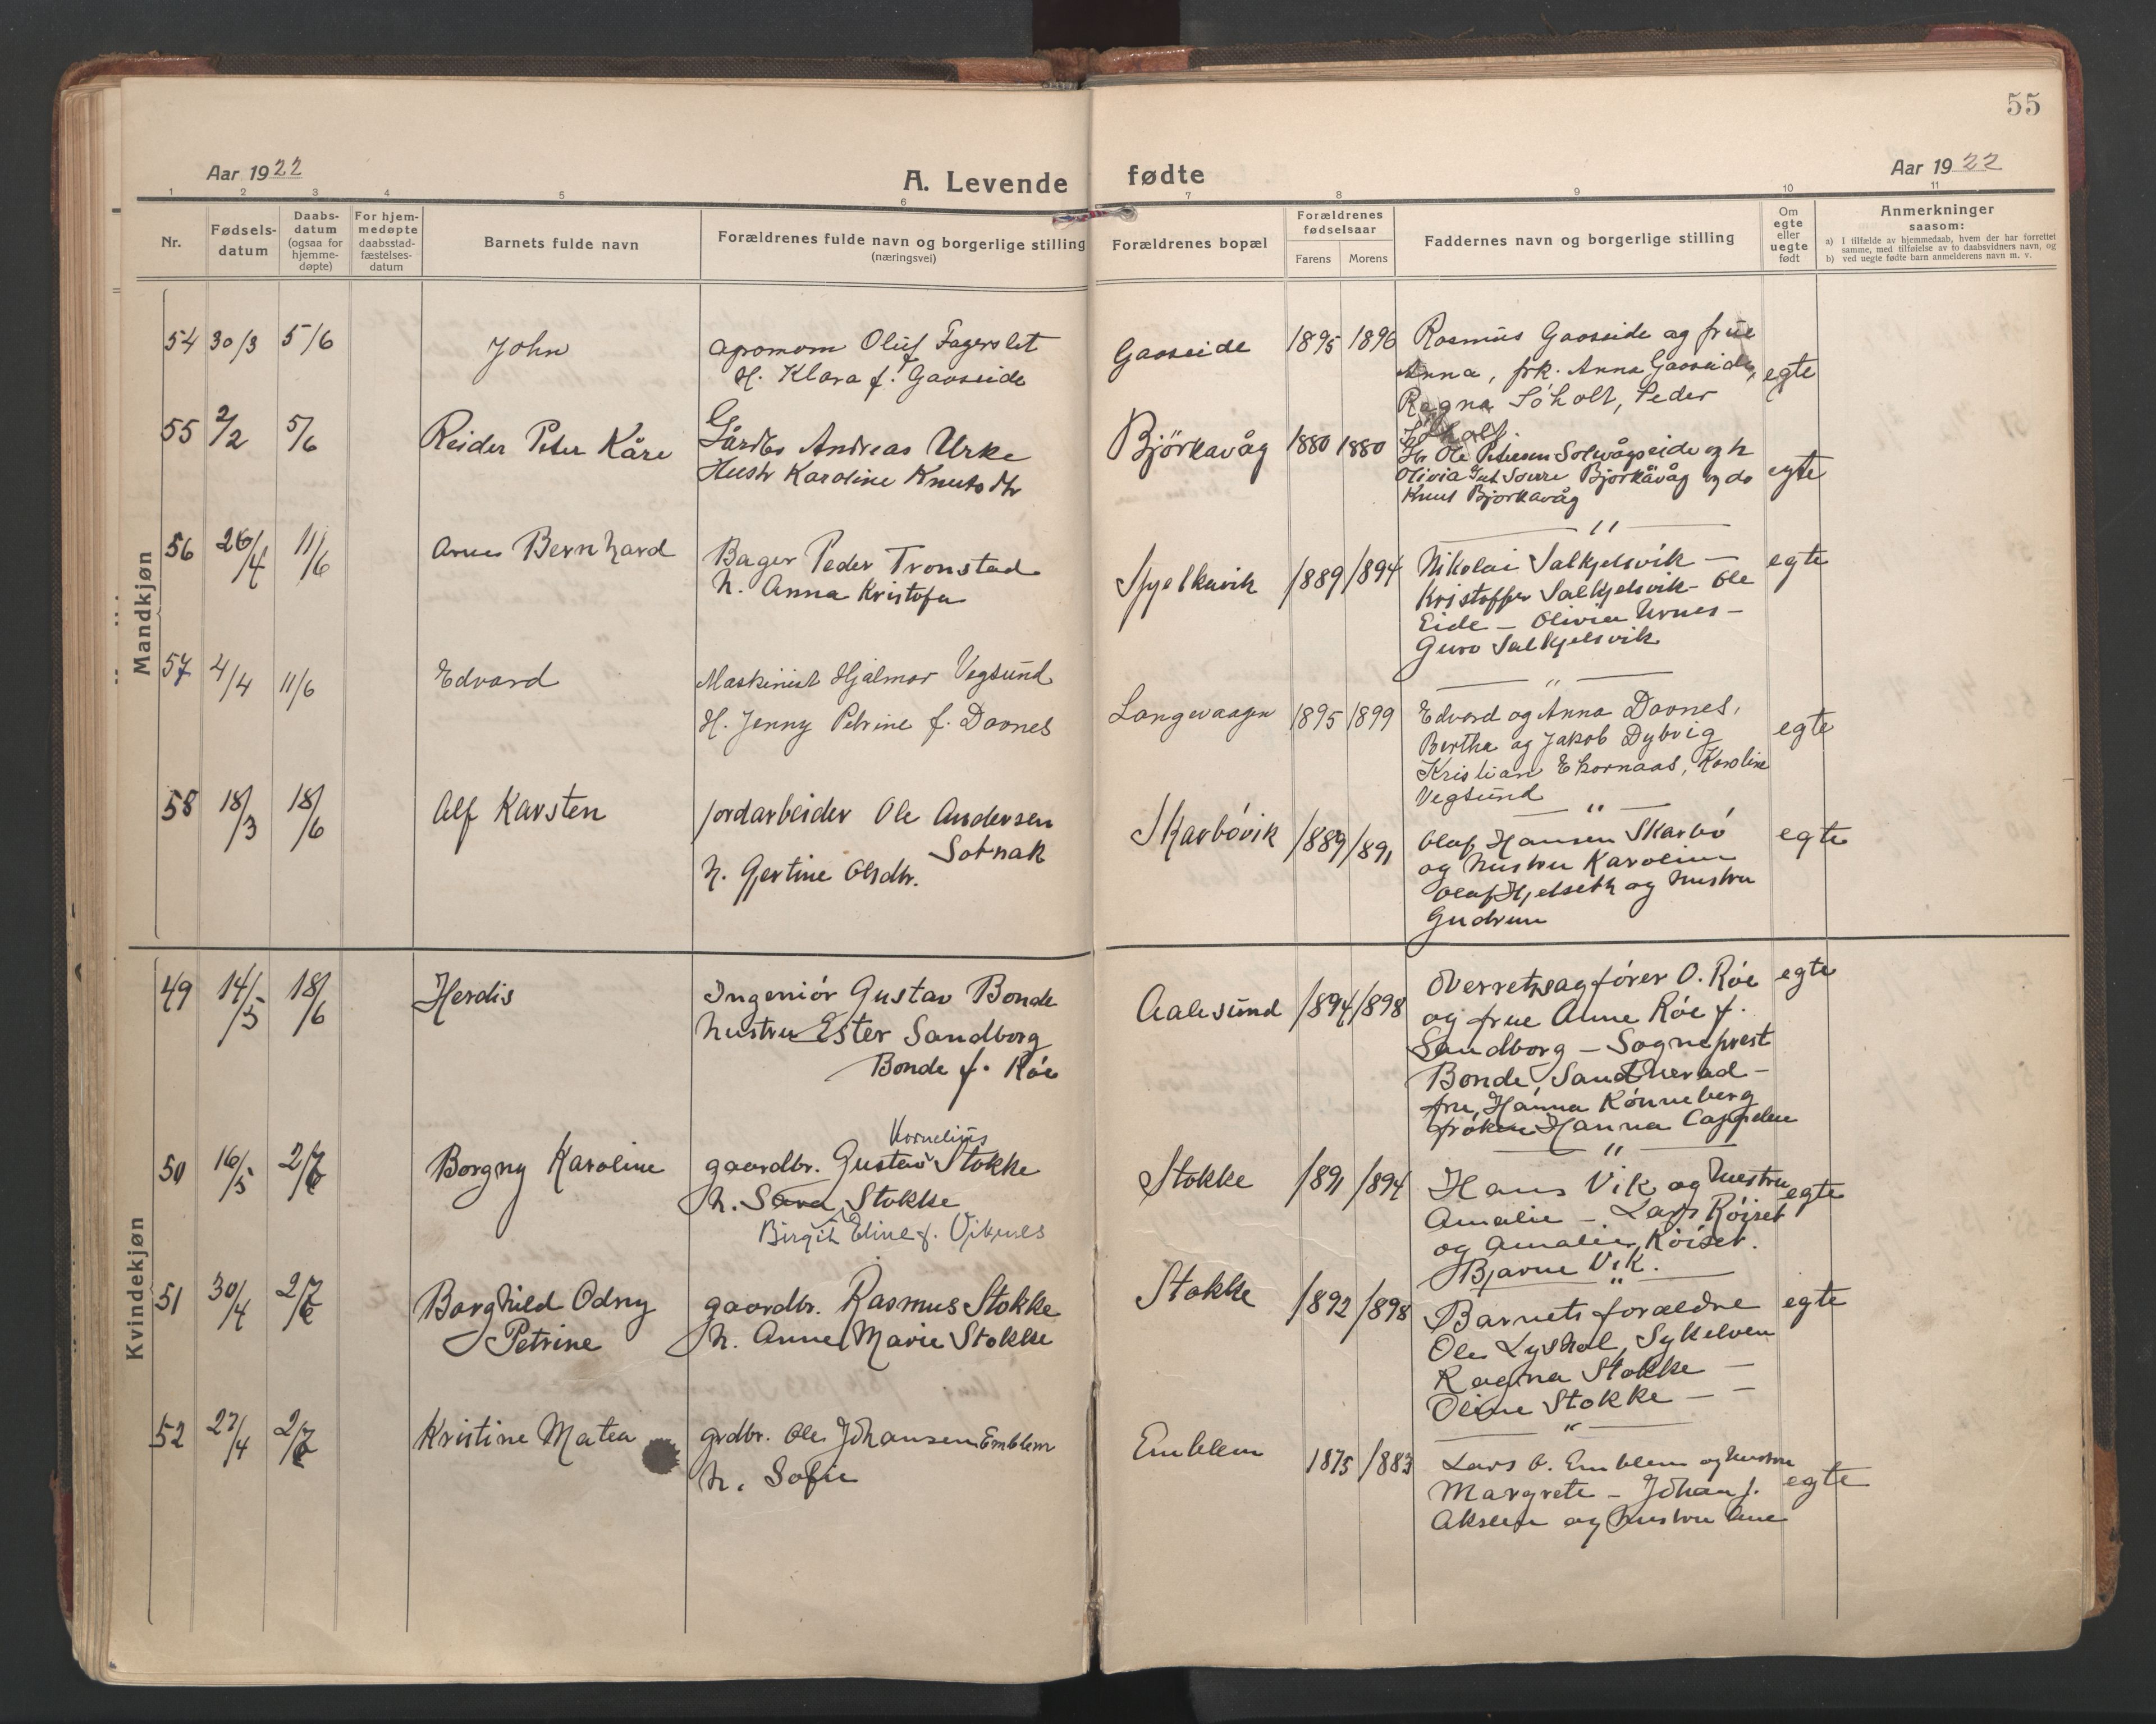 55
Aar 1922
A. Levende fødte
Aar 1922
1 2 3 4 5 6 7 8 9 10 11
Nr.
Fødsels-
datum
Daabs-
datum
(ogsaa for
hjemme-
døpte)
For hjem-
medøpte
daabsstad-
fæstelses-
datum
Barnets fulde navn
Forældrenes fulde navn og borgerlige stilling
(næringsvei)
Forældrenes bopæl
Forældrenes
fødselsaar
Farens Morens
Faddernes navn og borgerlige stilling
Om
egte
eller
uegte
født
Anmerkninger
saasom:
a) I tilfælde av hjemmedaab, hvem der har forrettet
samme, med tilføielse av to daabsvidners navn, og
b) ved uegte fødte barn anmelderens navn m. v.
Mandkjøn
54 30/3 5/6
John
Oluf Fagerslet
H. Klara f. Gaaseide
Gaaseide 1895 1896
Rasmus Gaaseide og frue
Anna, frk. Anna Gaaseide,
Ragna Søholt, Peder
Søholt.
egte
55 2/2 5/6
Reidar Peter Kåre
Gårdbr Andreas Urke
Hustr Karoline Knutsdtr
Björkavåg 1880 1880
Ole Petersen Solvågseide og h
Olivia Björkavåg og do
Knut Björkavåg
egte
"
56 26/4 11/6
Arne Bernhard
Bager Peder Tronstad
h. Anna Kristofa
Spjelkavik 1889 1894
Nikolai Salkjelsvik –
Kristoffer Salkjelsvik – Ole
Eide – Olivia Urnes –
Guro Salkjelsvik
egte
"
57 4/4 11/6
Edvard
Maskinist Hjalmar Vegsund
H. Jenny Petrine f. Davnes
Langevaagen 1895 1899
Edvard og Anna Davnes,
Bertha og Jakob Dybvig
Kristian Ekornaas, Karoline
Vegsund
egte
"
58 18/3 18/6
Alf Karsten
Jordarbeider Ole Andersen
Sotnak
h. Gjertine Olsdtr.
Skarbövik 1889 1891
Olaf Hansen Skarbö
og hustru Karoline
Olaf Hjelseth og hustru
Gudrun
egte
Kvindekjøn
49 14/5 18/6
Herdis
Ingeniör Gustav Bonde
hustru Ester Sandborg
Bonde f. Röe
Aalesund 1894 1898
Overretssagförer O. Röe
og frue Anne Röe f.
Sandborg – Sogneprest
Bonde, Sandherad –
fru Hanna Rönneberg
fröken Hanna Cappelen
egte
"
50 16/5 2/7
Borgny Karoline
Kornelius
gaardbr. Gustav Stokke
h. Sara Stokke
Birgit Eline f. Vikenes
Stokke 1891 1894
Hans Vik og hustru
Amalie – Lars Röiset
og Amalie Röiset.
Bjarne Vik.
egte
"
51 30/4 2/7
Borghild Odny
Petrine
gaardbr. Rasmus Stokke
h. Anne Marie Stokke
Stokke 1892 1898
Barnets forældre
Ole Lyshol, Sykelven
Ragna Stokke –
Oline Stokke – –
egte
"
52 27/4 2/7
Kristine Matea
grdbr. Ole Johansen Emblem
h. Sofie
Emblem 1875 1883
Lars O. Emblem og hustru
Margrete – Johan J.
Akslen og hustru Ane
egte